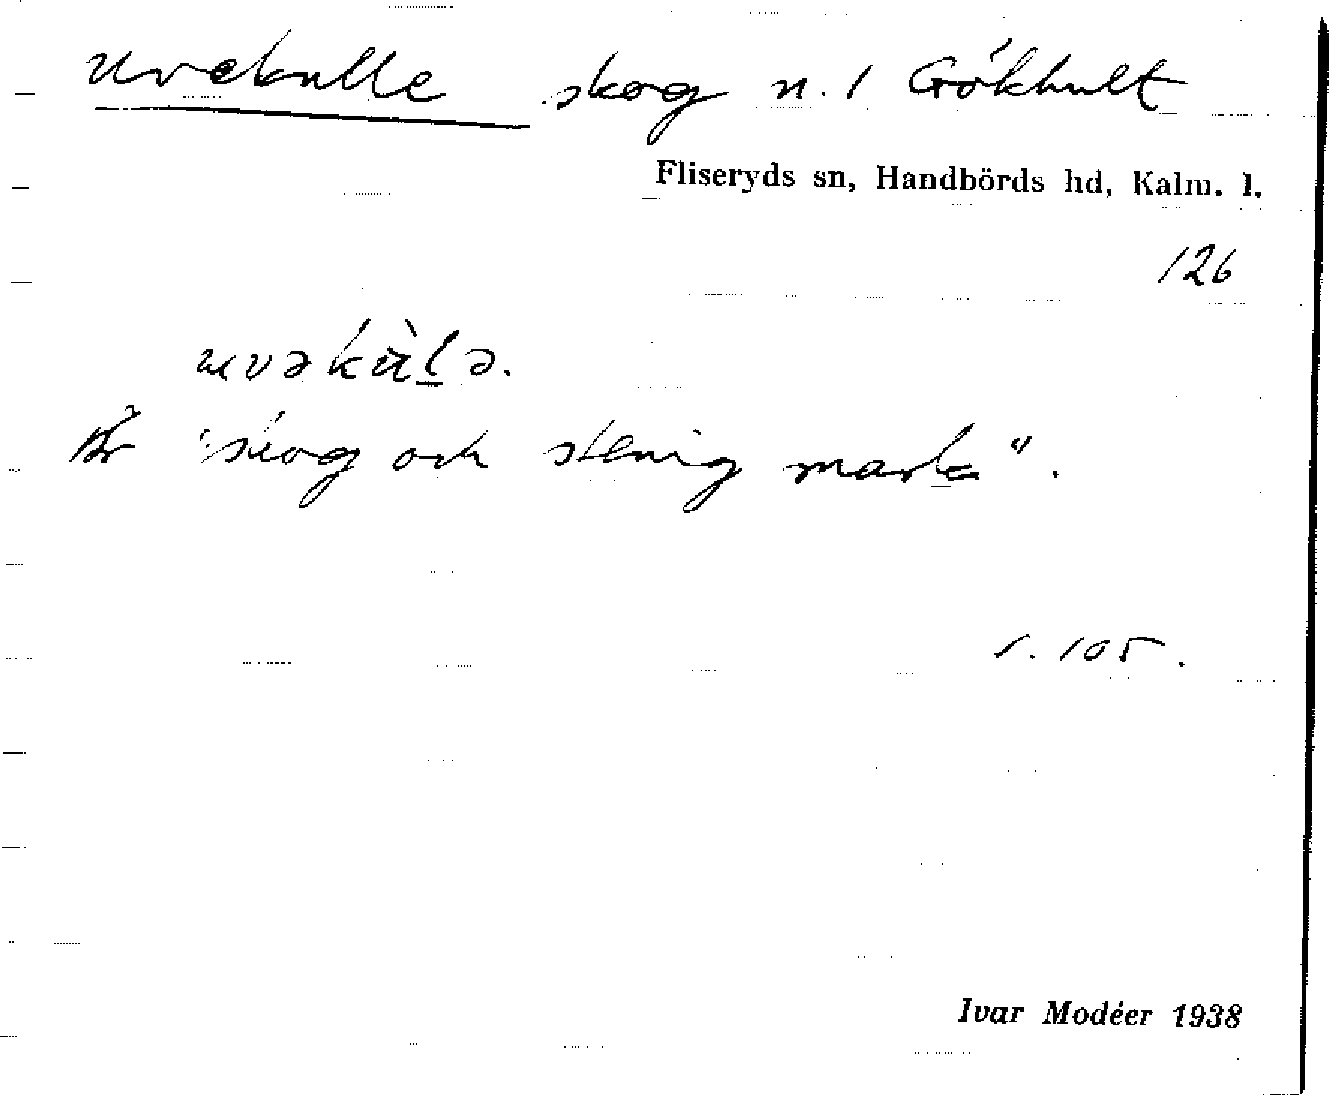 Uvekulle skog n. 1 Gökhult
Fliseryds sn, Handbörds hd, Kalm. l.
126
uvəkùlə.
Är "skog och stenig mark".
s. 105.
Ivar Modéer 1938